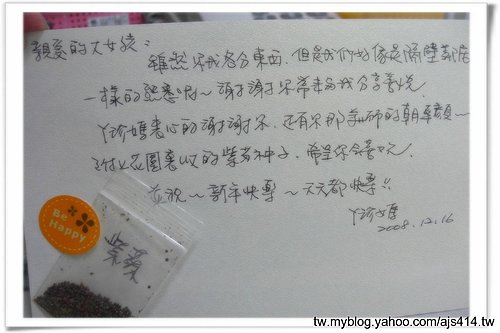 親愛的大女孩：
雖然你我各分東西，但是我們好像是隔壁鄰居
一樣的熟悉呦~謝謝你常來為我分享喜悅.
ㄚ珍媽衷心的謝謝你、還有你那
附上花園裏收的紫蘇種子，希望你會喜歡.
並祝~新年快樂~天天都快樂!!
ㄚ珍媽
2008.12.16
Be
Happy
紫蘇
tw.myblog.yahoo.com/ajs414.tw